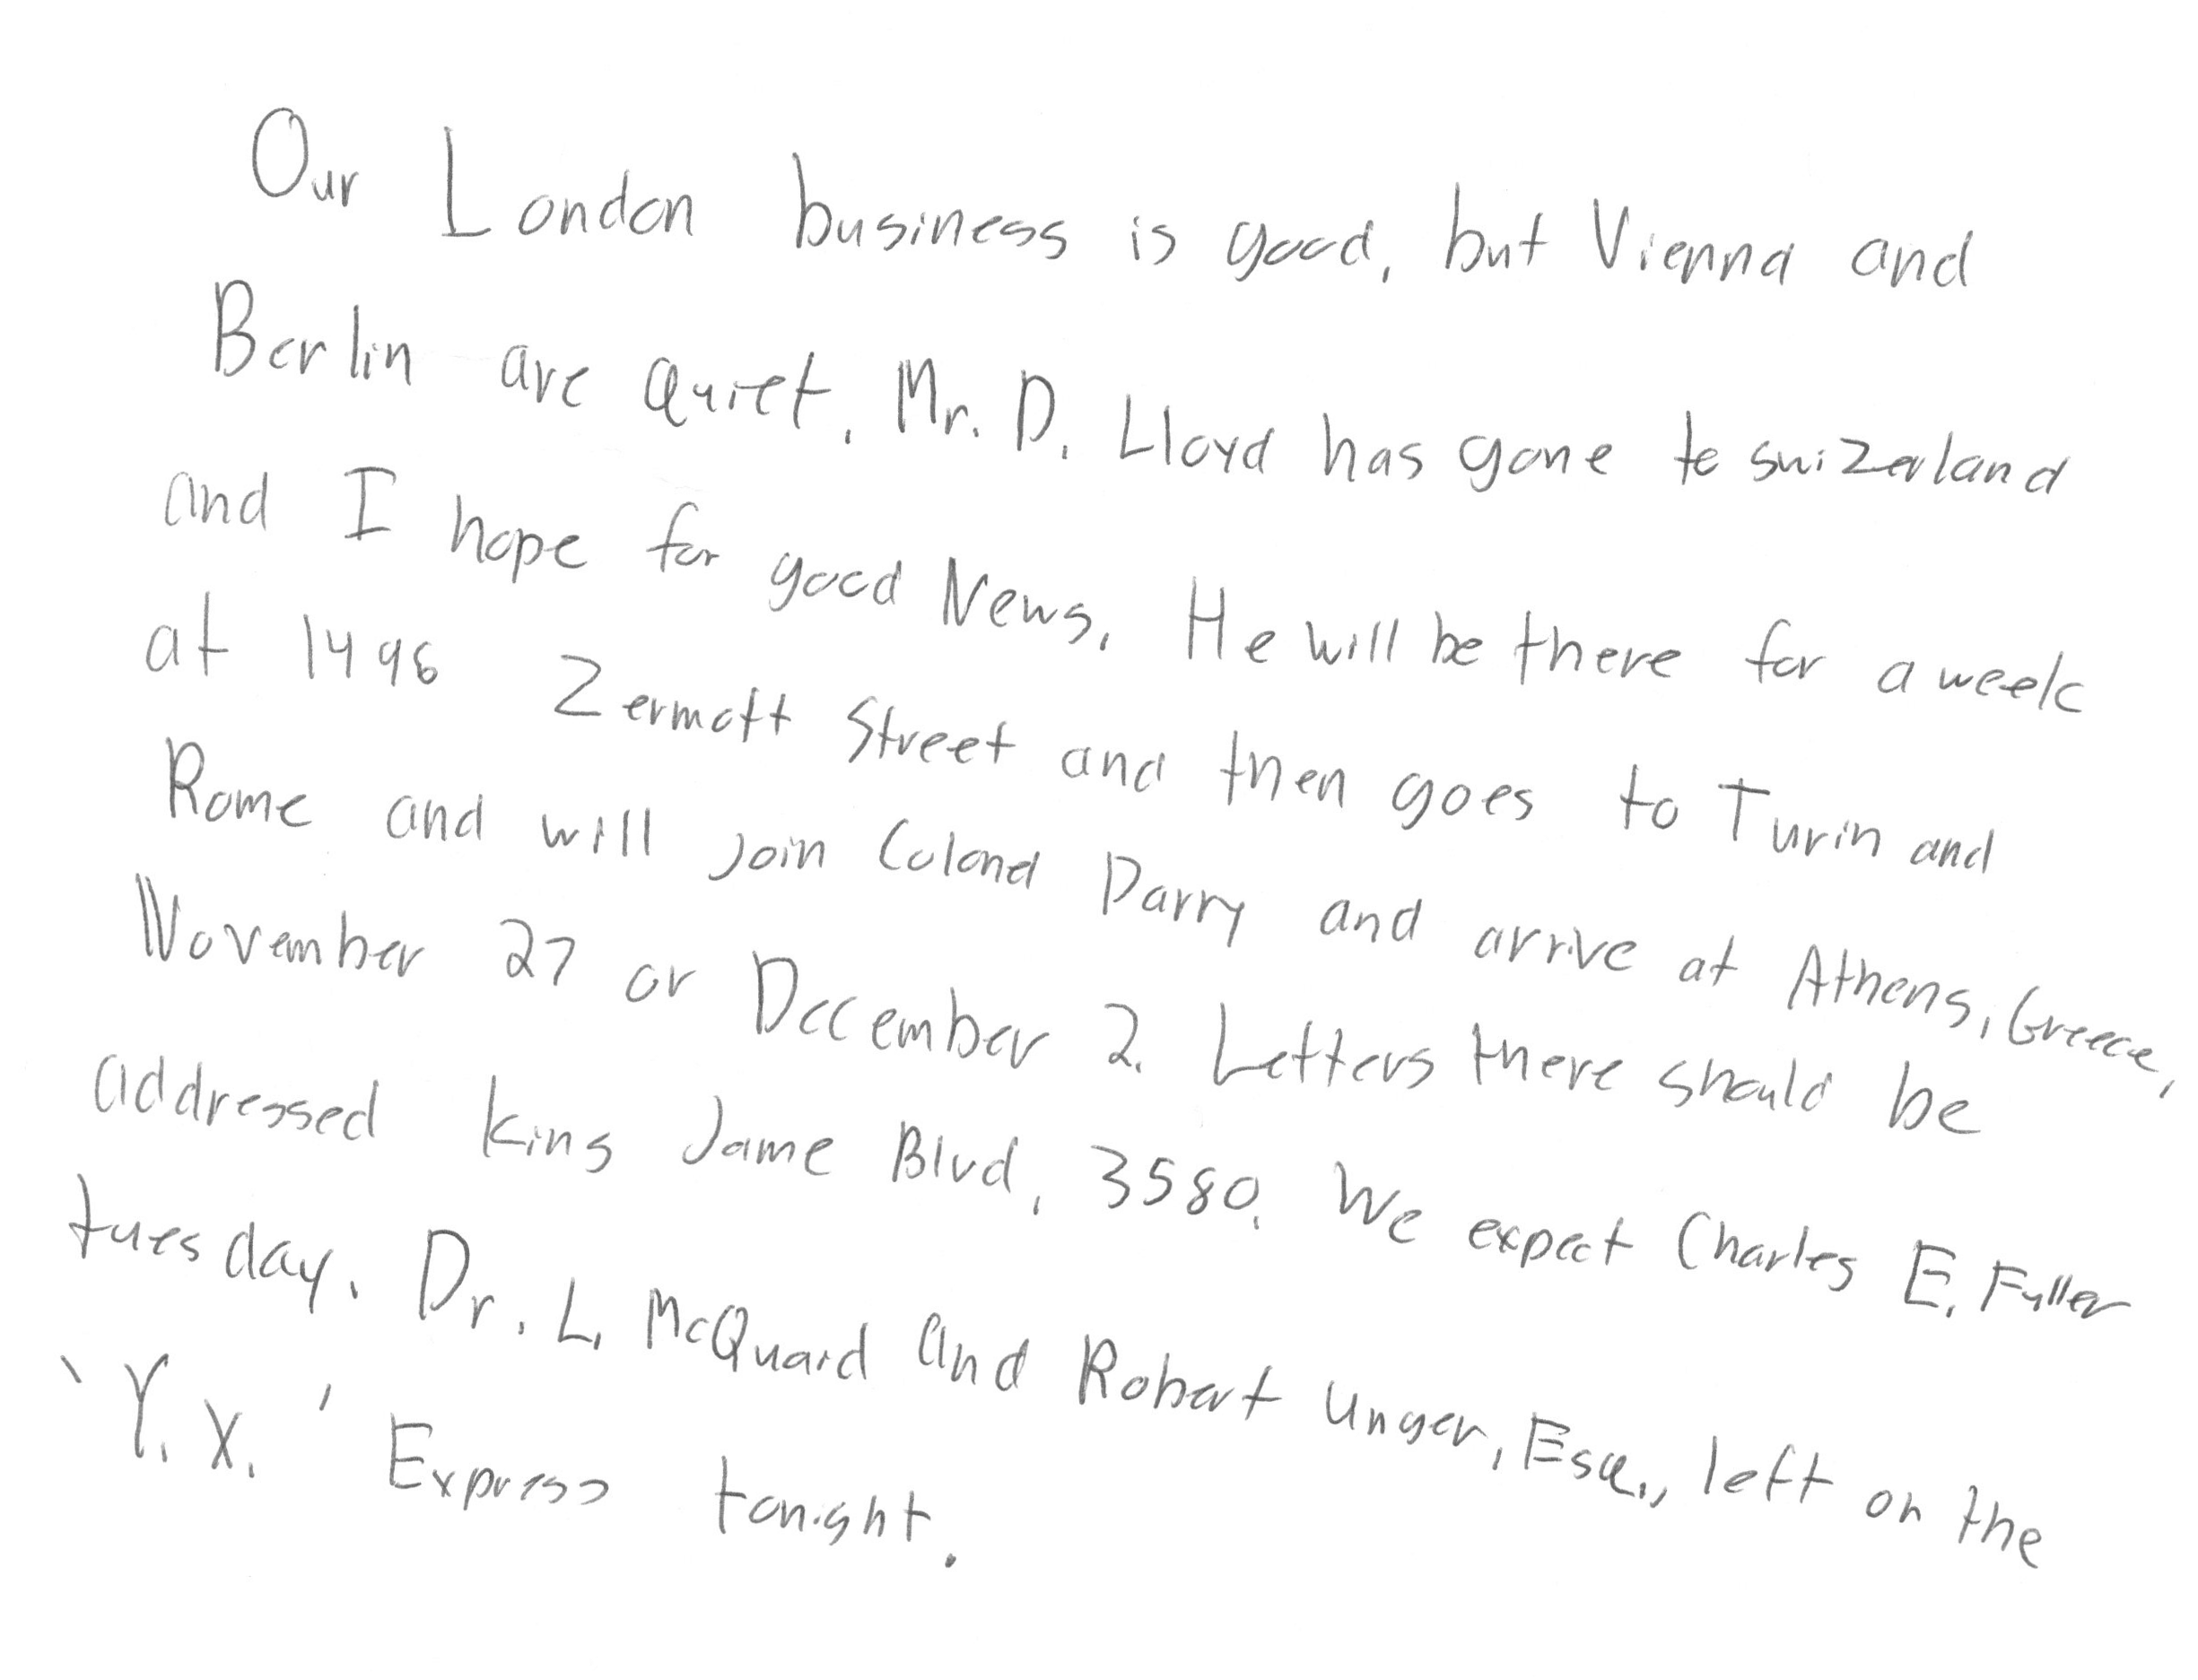 Our London business is good, but Vienna and
Berlin are quiet. Mr. D. Lloyd has gone to suizerland
and I hope for good News. He will be there for a week
at 1496 Zermott Street and then goes to Turin and
Rome and will join Colonel Parry and arrive at Athens, Greece,
November 27 or December 2. Letters there should be
addressed king Jame Blvd, 3580. We expect Charles E. Fuller
tuesday. Dr. L. McQuaid and Robert Unger, Esq., left on the
'Y. X.' Express tonight.